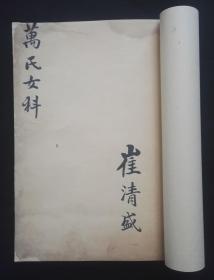 萬氏女科
崔清盛